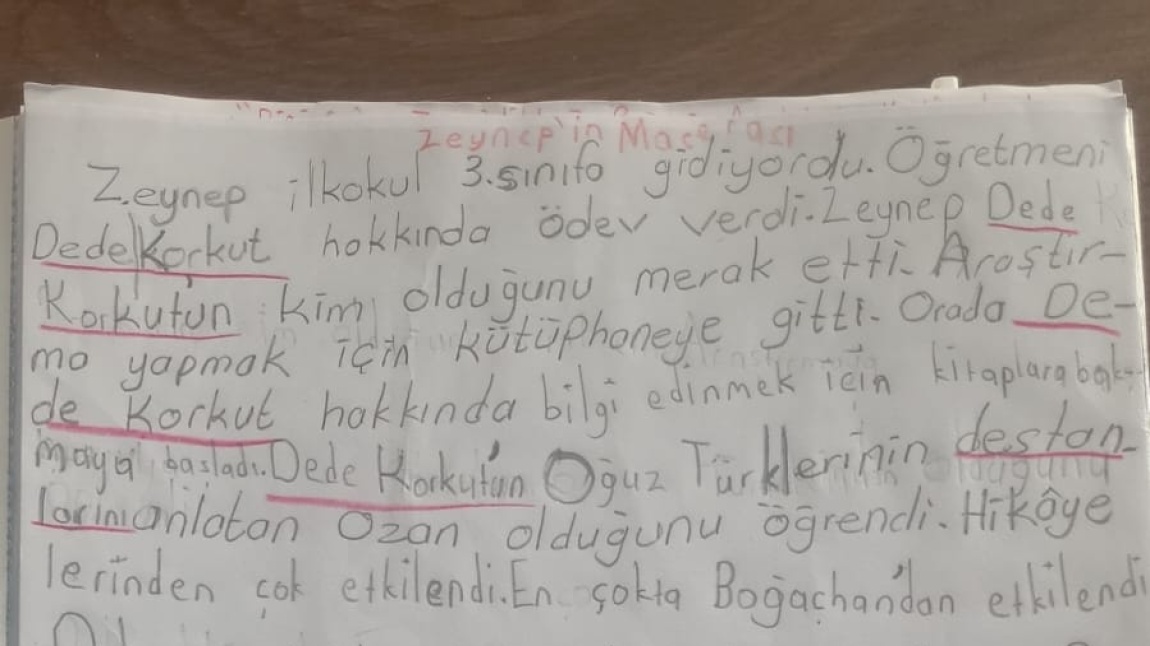 Zeynep'in Macerası
Zeynep ilkokul 3.sınıfa gidiyordu. Öğretmeni
Dede Korkut hakkında ödev verdi. Zeynep Dede
Korkutun kim olduğunu merak etti. Araştır-
ma yapmak için kütüphaneye gitti. Orada De-
de Korkut hakkında bilgi edinmek için kitaplara bak-
maya başladı. Dede Korkut'un Oğuz Türklerinin destan-
larını anlatan Ozan olduğunu öğrendi. Hikâye
lerinden çok etkilendi. En çokta Boğaçhan'dan etkilendi